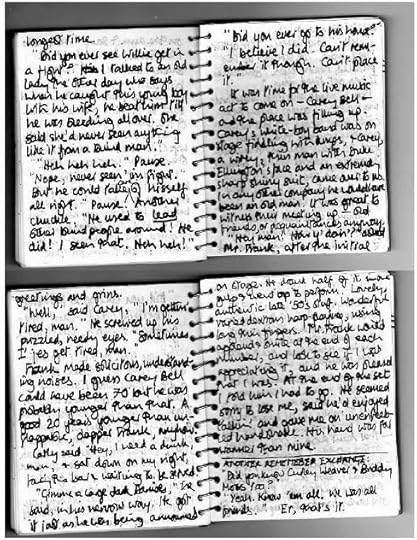 longest time.
"Did you ever see Willie get in
a fight?" I talked to an old
lady the other day who says
when he caught this young boy
with his wife, he beat him till
he was bleeding all over. She
said she'd never seen anything
like it from a blind man."
"Heh heh heh." Pause.
"Nope, never seen him fight.
But he could take himself
all right." Pause. Another
chuckle. "He used to lead
other blind people around! He
did! I seen that. Heh heh!"
"Did you ever go to his house?"
"I believe I did. Can't rem-
ember it though. Can't place
it."
It was time for the live music
act to come on – Carey Bell –
and the place was filling up.
Carey's white-boy band was on
stage fiddling with amps, & Carey,
a wiry, thin man with Duke
Ellington's face and an extremely
sharp shiny suit, came over to us.
In any other company he would have
been an old man. It was great to
witness this meeting up – old
friends, or acquaintances anyway.
"Hey man! How y' doin'?" asked
Mr. Frank, after the initial
greetings and grins.
"Well," said Carey, "I'm gettin'
tired, man." He screwed up his
puzzled, needy eyes. "Sometimes
I jes get tired, man."
Frank made solicitous, understand-
ing noises. I guess Carey Bell
could have been 70 but he was
probably younger than that. A
good 20 years younger than un-
flappable, dapper Frank anyhow.
Carey said "Hey, I need a drink,
man," & sat down on my right,
facing the bar & waiting to be served.
"Gimme a large dark Bacardi," he
said, in his nervous way. He got
it just as he was being announced
on stage. He drank half of it in one
gulp & threw up to perform. Lovely,
authentic late '50s stuff. Wonderful
varied dextrous harp-playing, using
long thin fingers. Mr. Frank would
applaud quite at the end of each
number, and look to see if I was
appreciating it, and he was pleased
that I was. At the end of the set
I told him I had to go. He seemed
sorry to lose me, said he'd enjoyed
talkin' and gave me an unexpect-
ed handshake. His hand was far
warmer than mine.
ANOTHER REMEMBERED EXCHANGE:
"Did you know Curley Weaver & Buddy
Moss too?"
"Yeah. Know 'em all. We was all
friends." Er, that's it.